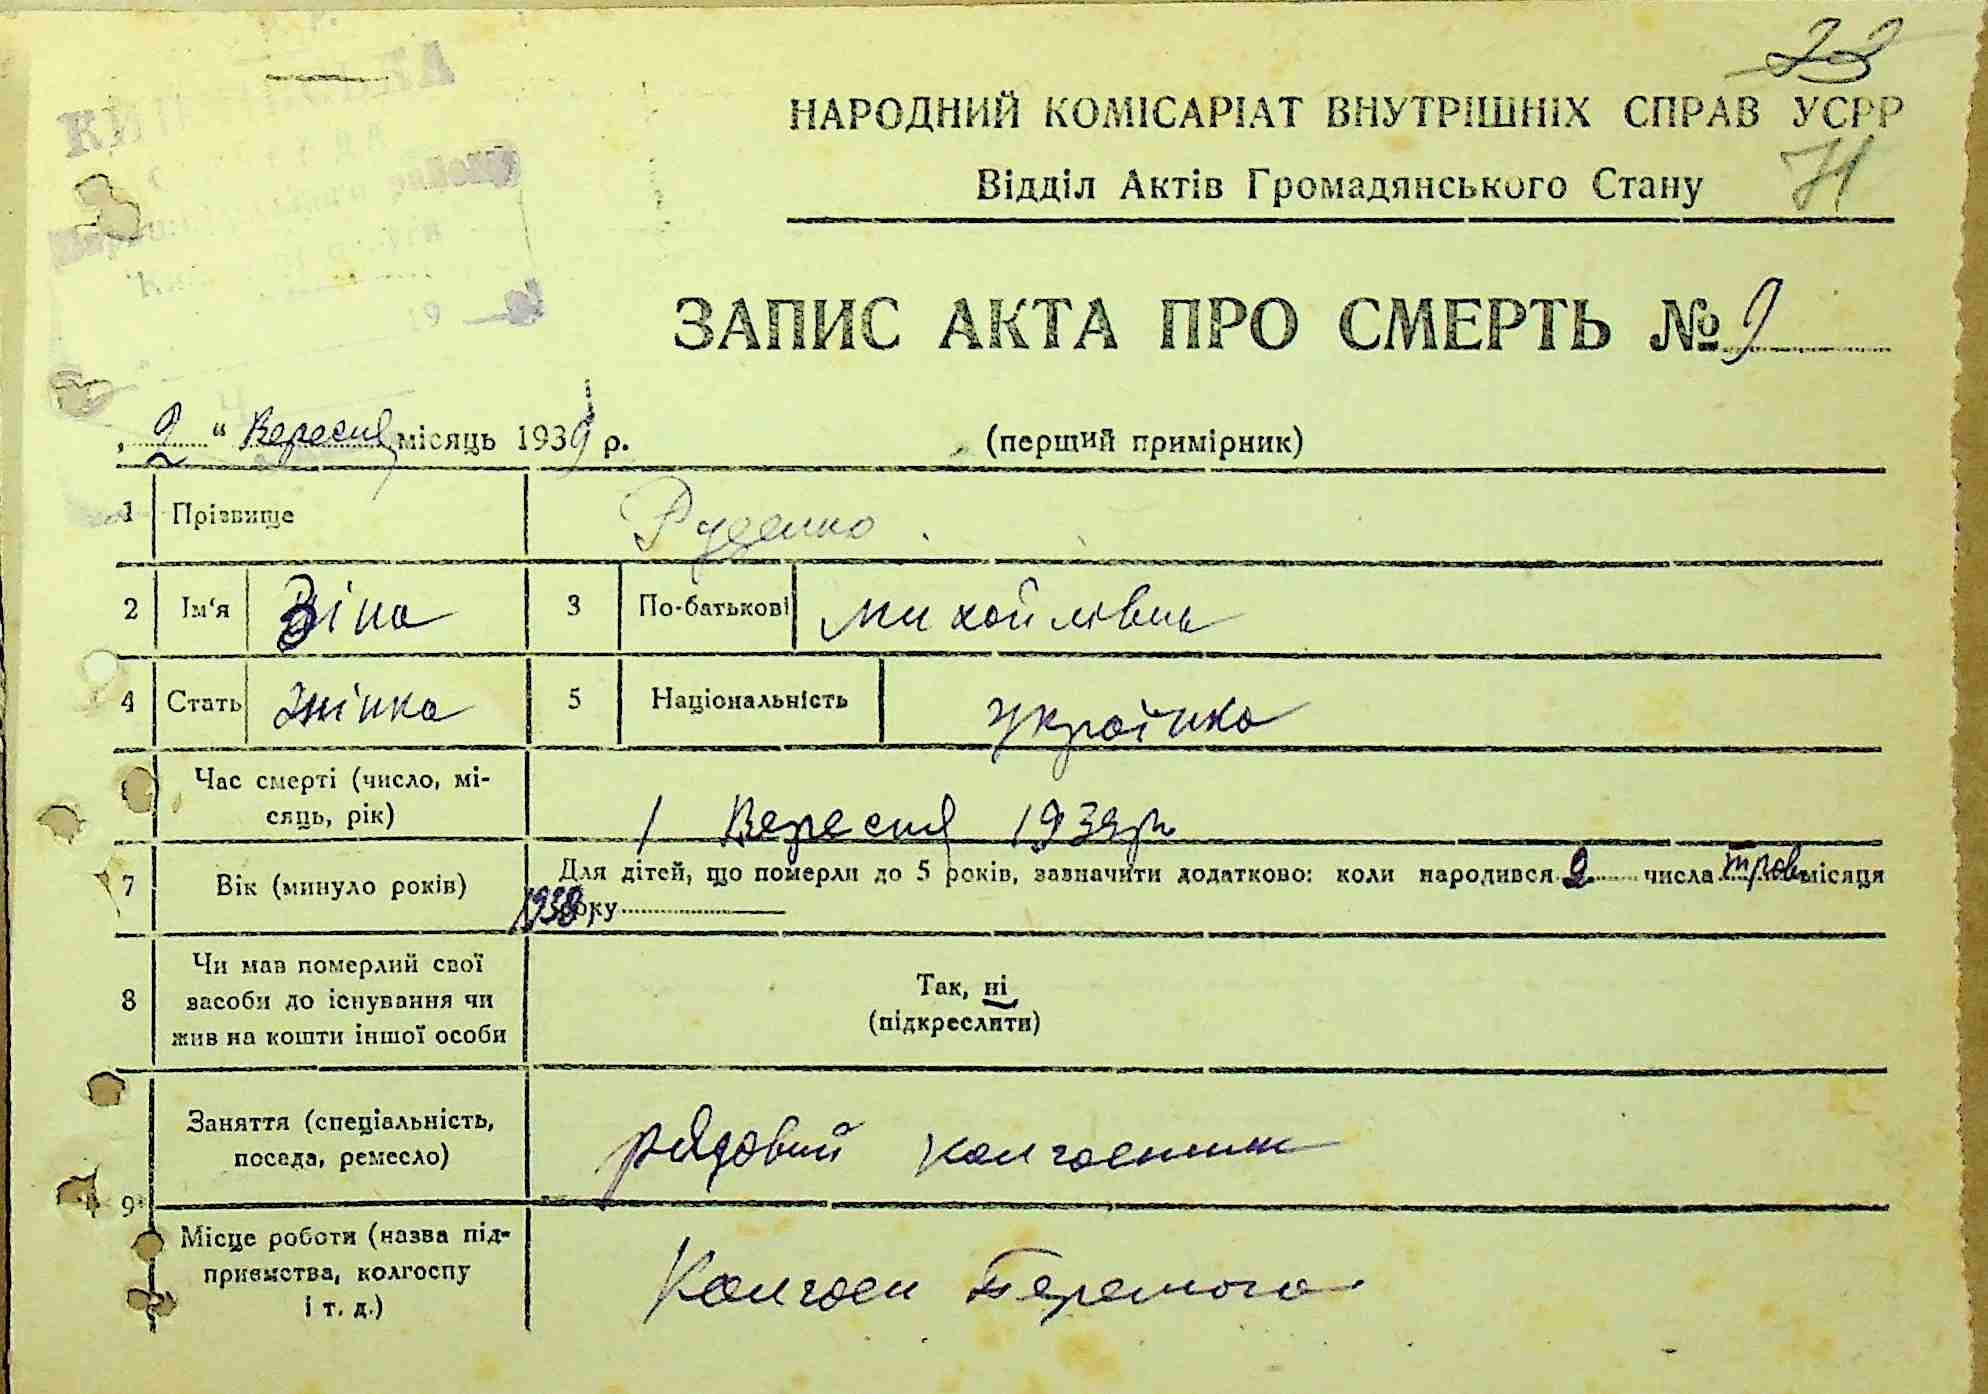 23
НАРОДНИЙ КОМІСАРІАТ ВНУТРІШНІХ СПРАВ УСРР
71
Відділ Актів Громадянського Стану
ЗАПИС АКТА ПРО СМЕРТЬ № 9
„ 2 “ Вересня місяць 1939 р. (перший примірник)
1 Прізвище Руденко
2 Ім'я Зіна 3 По-батькові Михайлівна
4 Стать Жінка 5 Національність українка
Час смерті (число, мі-
сяць, рік) 1 Вересня 1939р
7 Вік (минуло років) Для дітей, що померли до 5 років, зазначити додатково: коли народився 2 числа трав місяця
1938 року
8 Чи мав померлий свої
засоби до існування чи
жив на кошти іншої особи
Так, ні
(підкреслити)
9 Заняття (спеціальність,
посада, ремесло) рядовий колгоспник
Місце роботи (назва під-
приємства, колгоспу
і т. д.) Колгосп Перемога